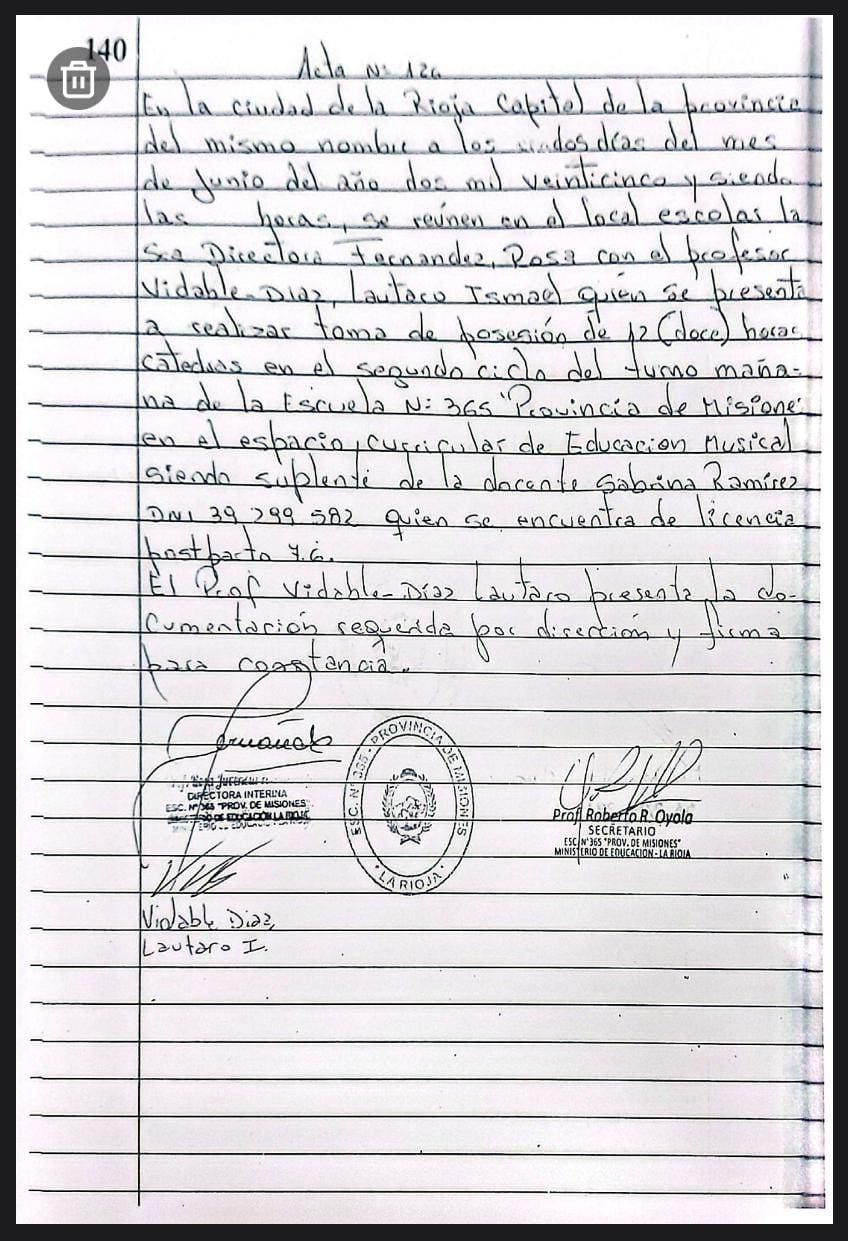 140
Acta Nº 126
En la ciudad de la Rioja Capital de la provincia
del mismo nombre a los dos días del mes
de Junio del año dos mil veinticinco y siendo
las horas, se reúnen en el local escolar la
Sra Directora Fernandez, Rosa con el profesor
Vidable-Díaz, Lautaro Ismael quien se presenta
a realizar toma de posesión de 12 (doce) horas
catedras en el segundo ciclo del turno maña-
na de la Escuela Nº 365 "Provincia de Misiones
en el espacio curricular de Educacion Musical
siendo suplente de la docente Sabrina Ramírez
DNI 39 299 582 quien se encuentra de licencia
postparto
El Prof Vidable-Díaz Lautaro presenta la do-
cumentación requerida por dirección y firma
para constancia.
DIRECTORA INTERINA
ESC. Nº 365 "PROV. DE MISIONES"
MINISTERIO DE EDUCACIÓN LA RIOJA
ESC. Nº 365 - PROVINCIA DE MISIONES
· LA RIOJA ·
Prof. Roberto R. Oyola
SECRETARIO
ESC. Nº 365 "PROV. DE MISIONES"
MINISTERIO DE EDUCACION - LA RIOJA
Vidable Diaz,
Lautaro I.